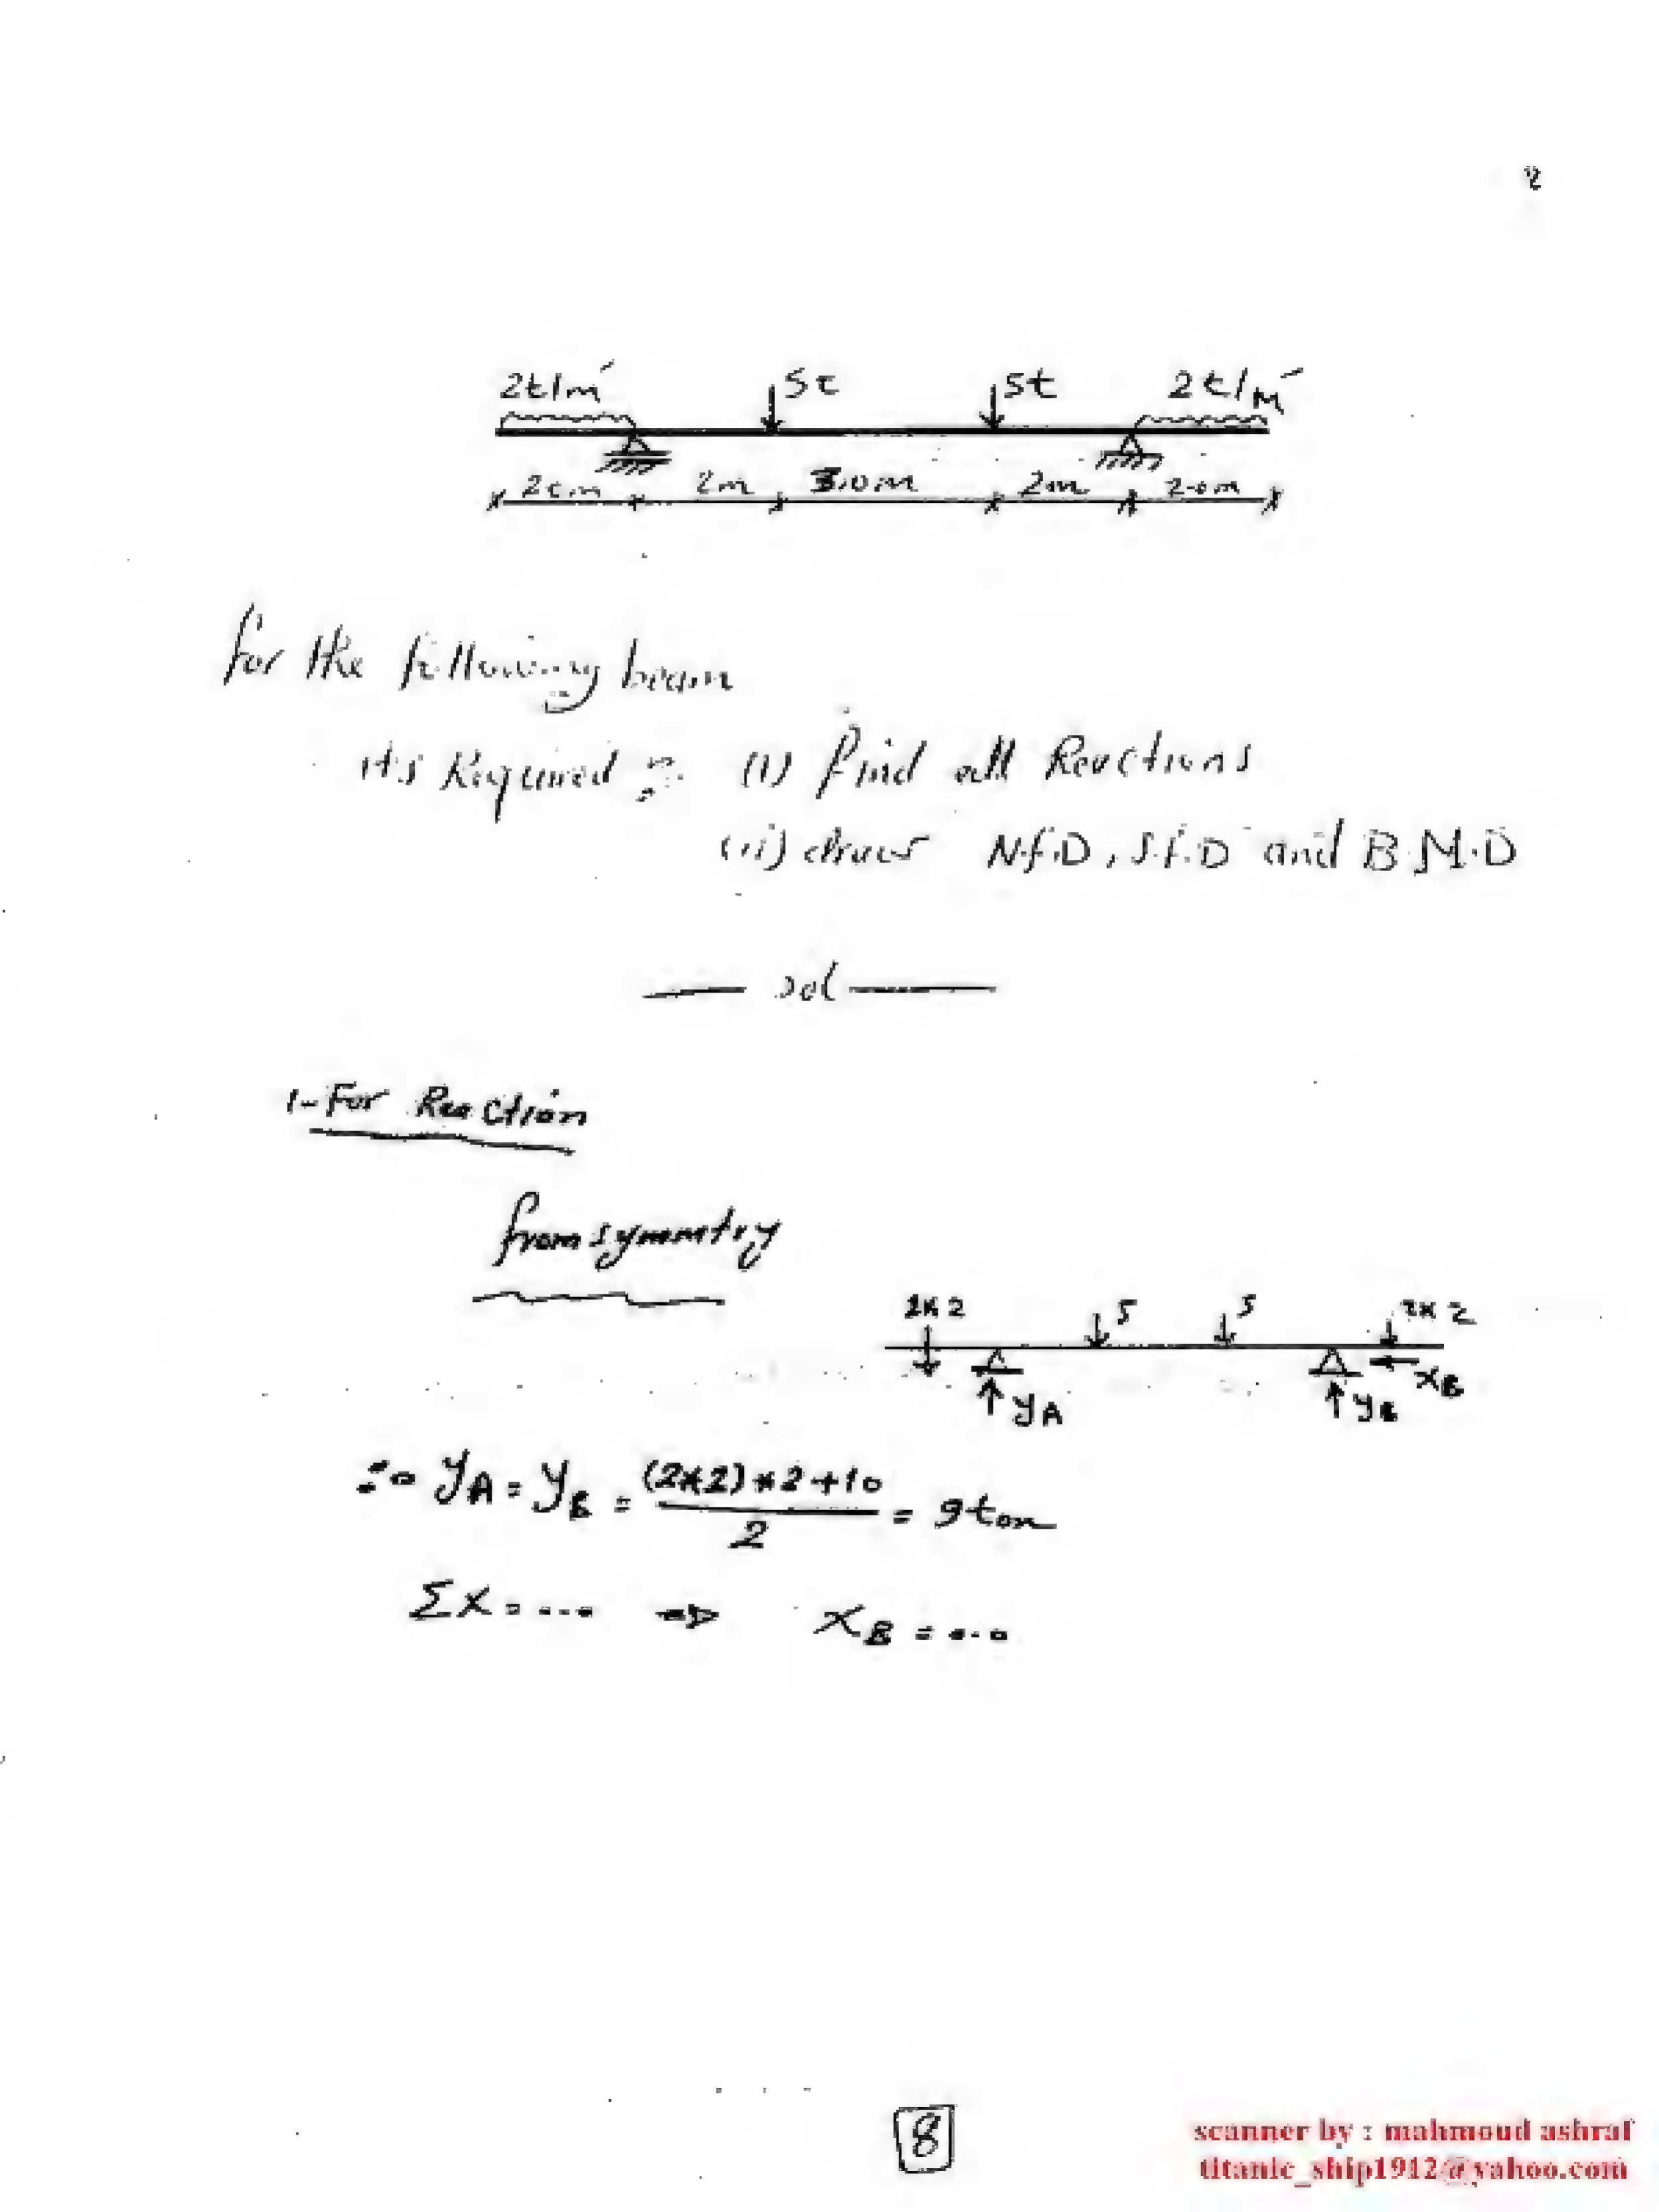 2t/m' 5t 5t 2t/m'
2.0m 2m 3.0m 2m 2.0m
for the following beam
it's Required (i) find all Reactions
(ii) draw N.F.D, S.F.D and B.M.D
sol
1- For Reaction
from symmetry
2*2 5 5 2*2
yA yB xB
∴ yA = yB = (2*2)*2+10 / 2 = 9 ton
Σx = ... ⇒ xB = ...
8
scanner by : mahmoud ashraf
titanic_ship1912@yahoo.com